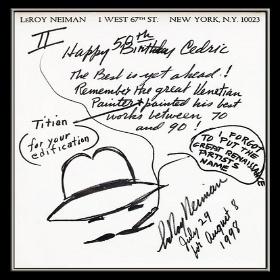 LEROY NEIMAN 1 WEST 67TH ST. NEW YORK, N.Y. 10023
II
Happy 50th Birthday Cedric
The Best is yet ahead!
Remember the great Venetian
Painter painted his best
works between 70
and 90!
Titian
for your
edification
I FORGOT
TO PUT THE
GREAT RENAISSANCE
ARTISTS
NAME
LeRoy Neiman
July 29
for August 8
1998